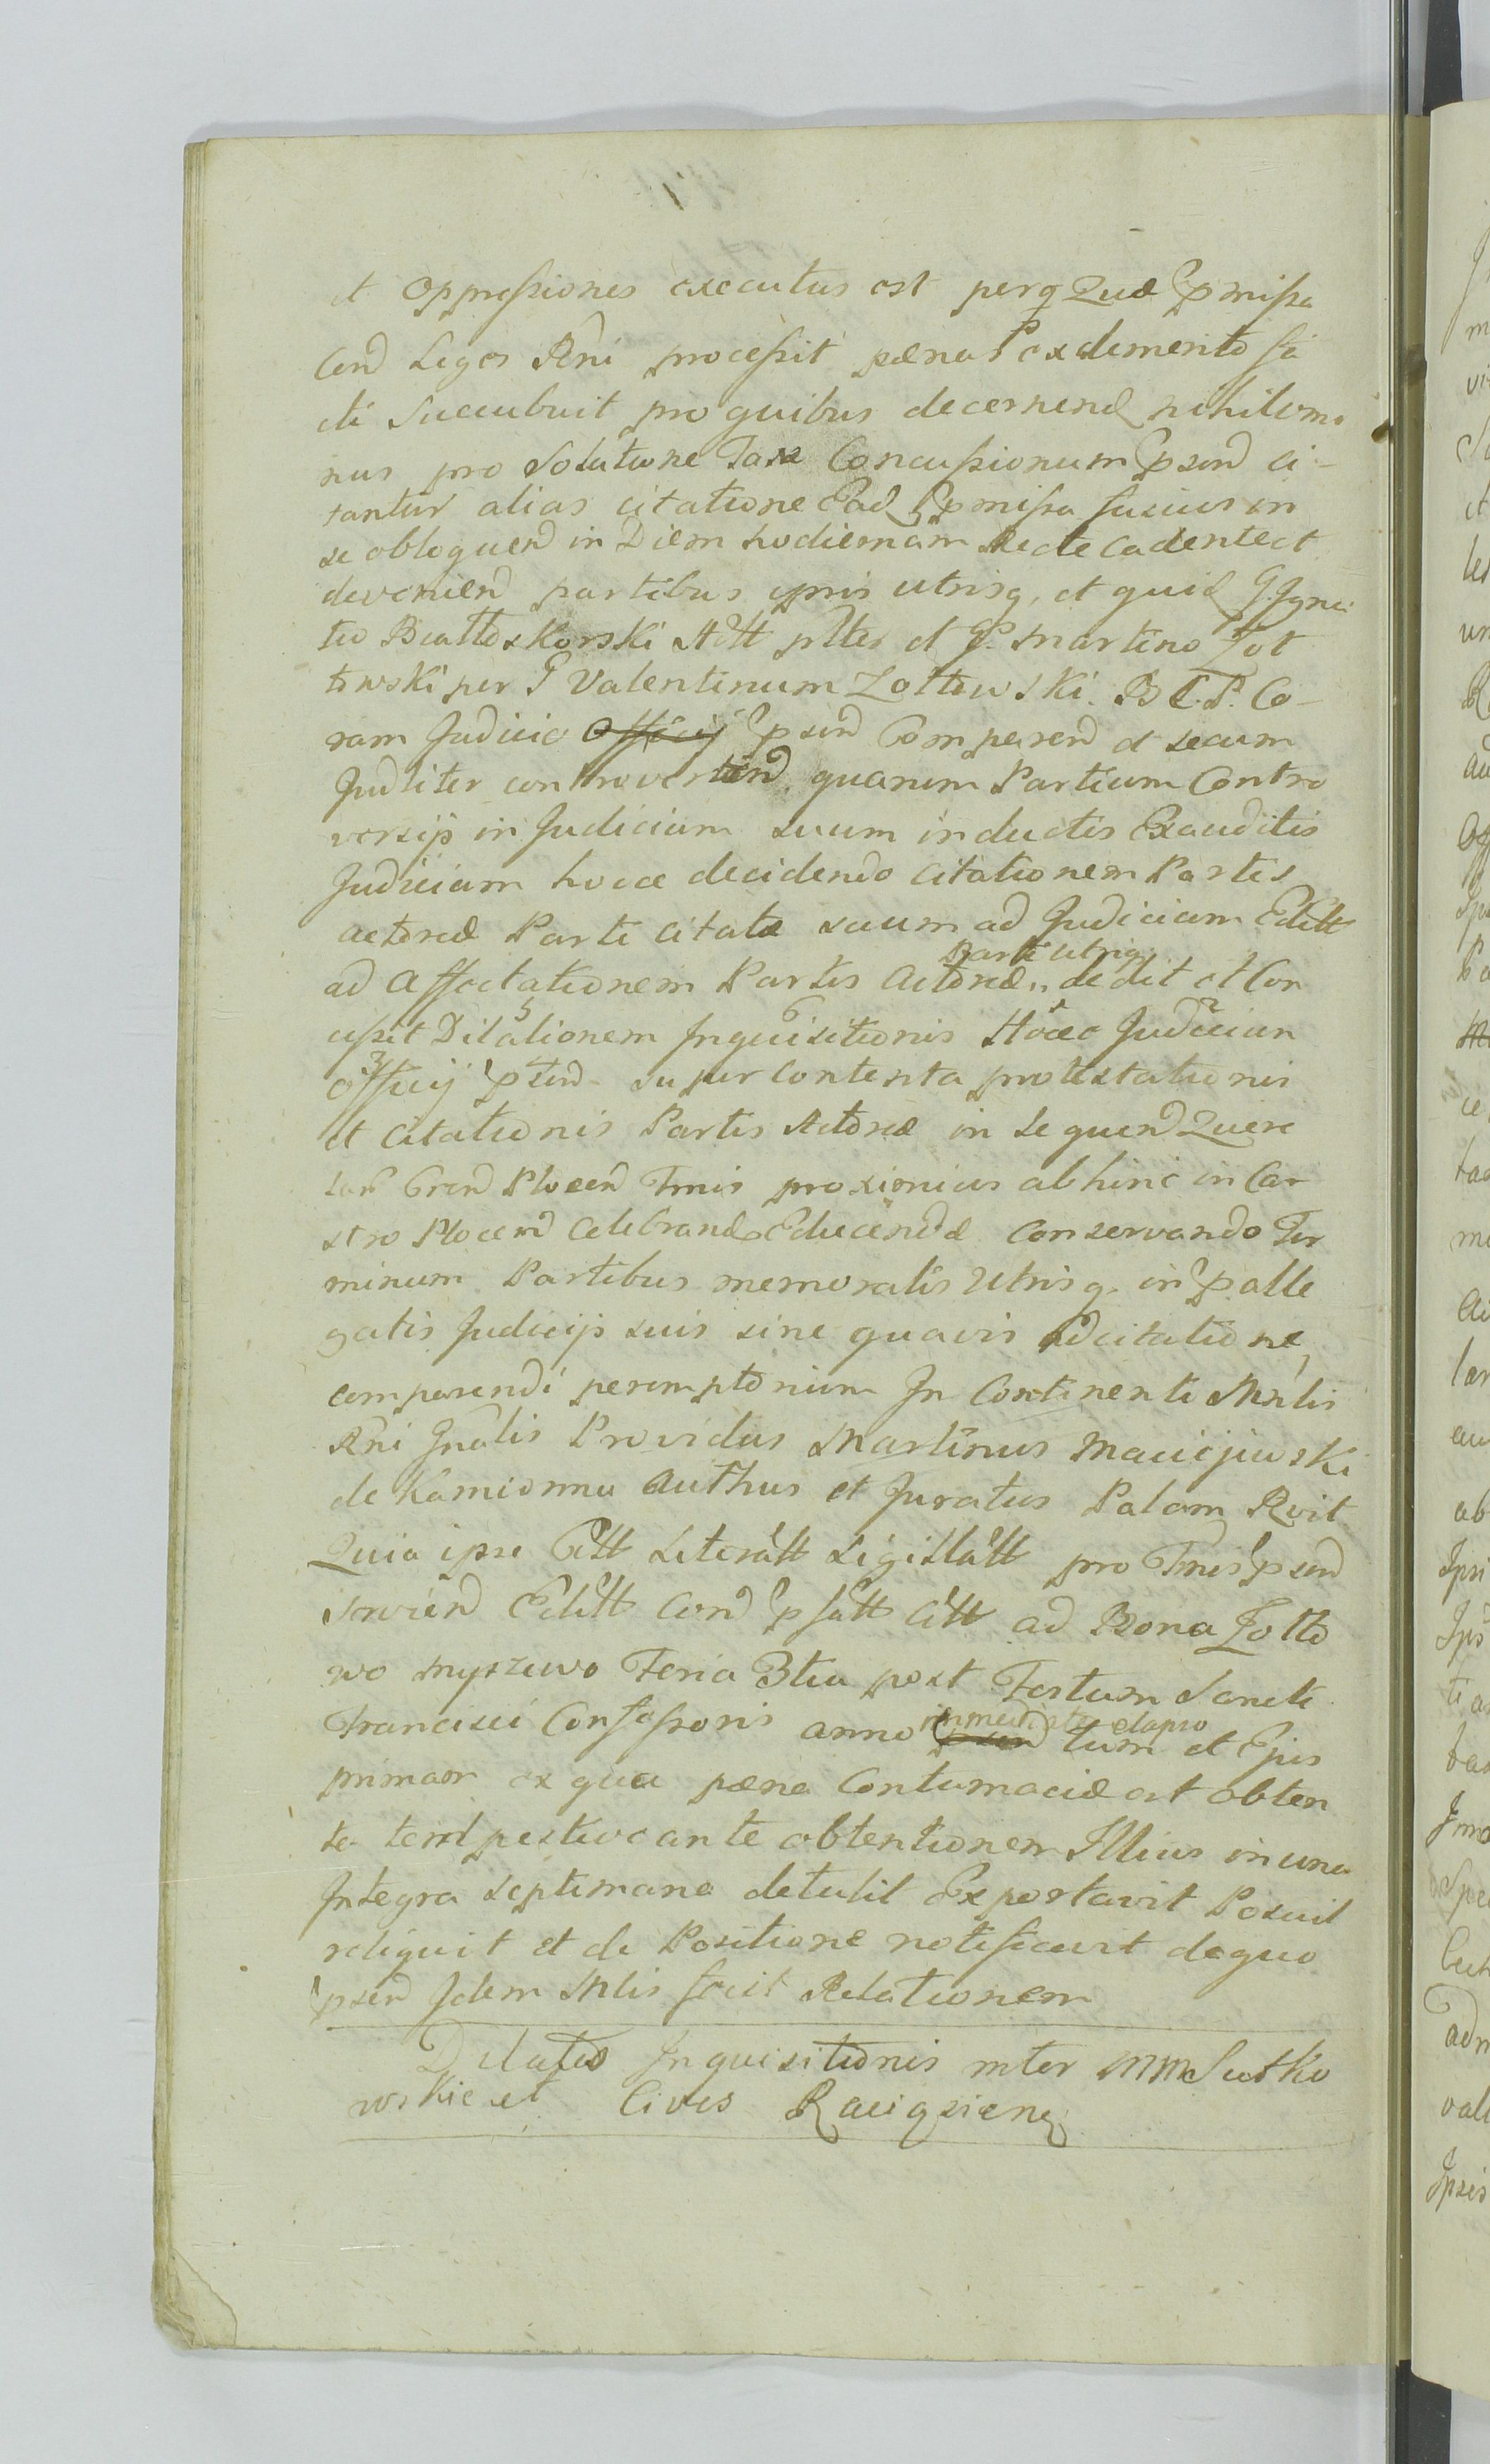 et Oppressiones executus est perq Quæ Pmissa
Cond Leges Rñi processit pænas ex demerito fa
cti Succubuit pro quibus decernend nihilomi
nus pro Solutione Taxæ Concussionum Psend ci-
tantur alias citatione Ead Pmissa fusius in
se obloquend in Diem hodiernam Recte cadente et
deveniend partibus ipsis utrisq, et quid G. Igna
tio Białoskorski Actt pttes et G. Martino Żół
towski per G Valentinum Żołtowski B C. P. Co-
ram Judicio Officij psend Comparend et secum
Judliter controvertend quarum Partium Contro
versijs in Judicium suum inductis Exauditis
Judicium hocce decidendo citationem Partis
actoreæ Parte citata suum ad Judicium Editt
Parti utriq
ad Affectationem Partis Actoreæ dedit et Con
cessit Dilationem Inquisitionis Hocce Judicium
Officij psend super contenta protestationis
et Citationis Partis Actoreæ in sequend Quere
lar Grend Plocend Tmis proximius abhinc in Ca
stro Plocend Celebrand Educendæ Conservando Ter
minum Partibus memoratis Utrisq. in palle
gatis Judicijs suis sine quavis adcitatione
comparendi peremptorium In Continenti Mnlis
Rñi Gnalis Providus Martinus Maciejewski
de Kamionna Authus et Juratus Palam Rvit
Quia ipse Citt Literatt Sigillatt pro Tmis psend
serviend Editt Cond psatt Citt ad Bona Żołto
wo Myszewo Feria 3tia post Festum Sancti
Francisci Confessoris anno immediate elapso
psend tum et Ejus
primam ex qua pæna Contumaciæ est obten
ta tempestive ante obtentionem Illius in una
Integra septimana detulit Exportavit Posuit
reliquit et de Positione notificavit de quo
psend Idem Mlis fecit Relationem
Dilatio Inquisitionis inter MM Sutko
wskie et Cives Raciąsiens